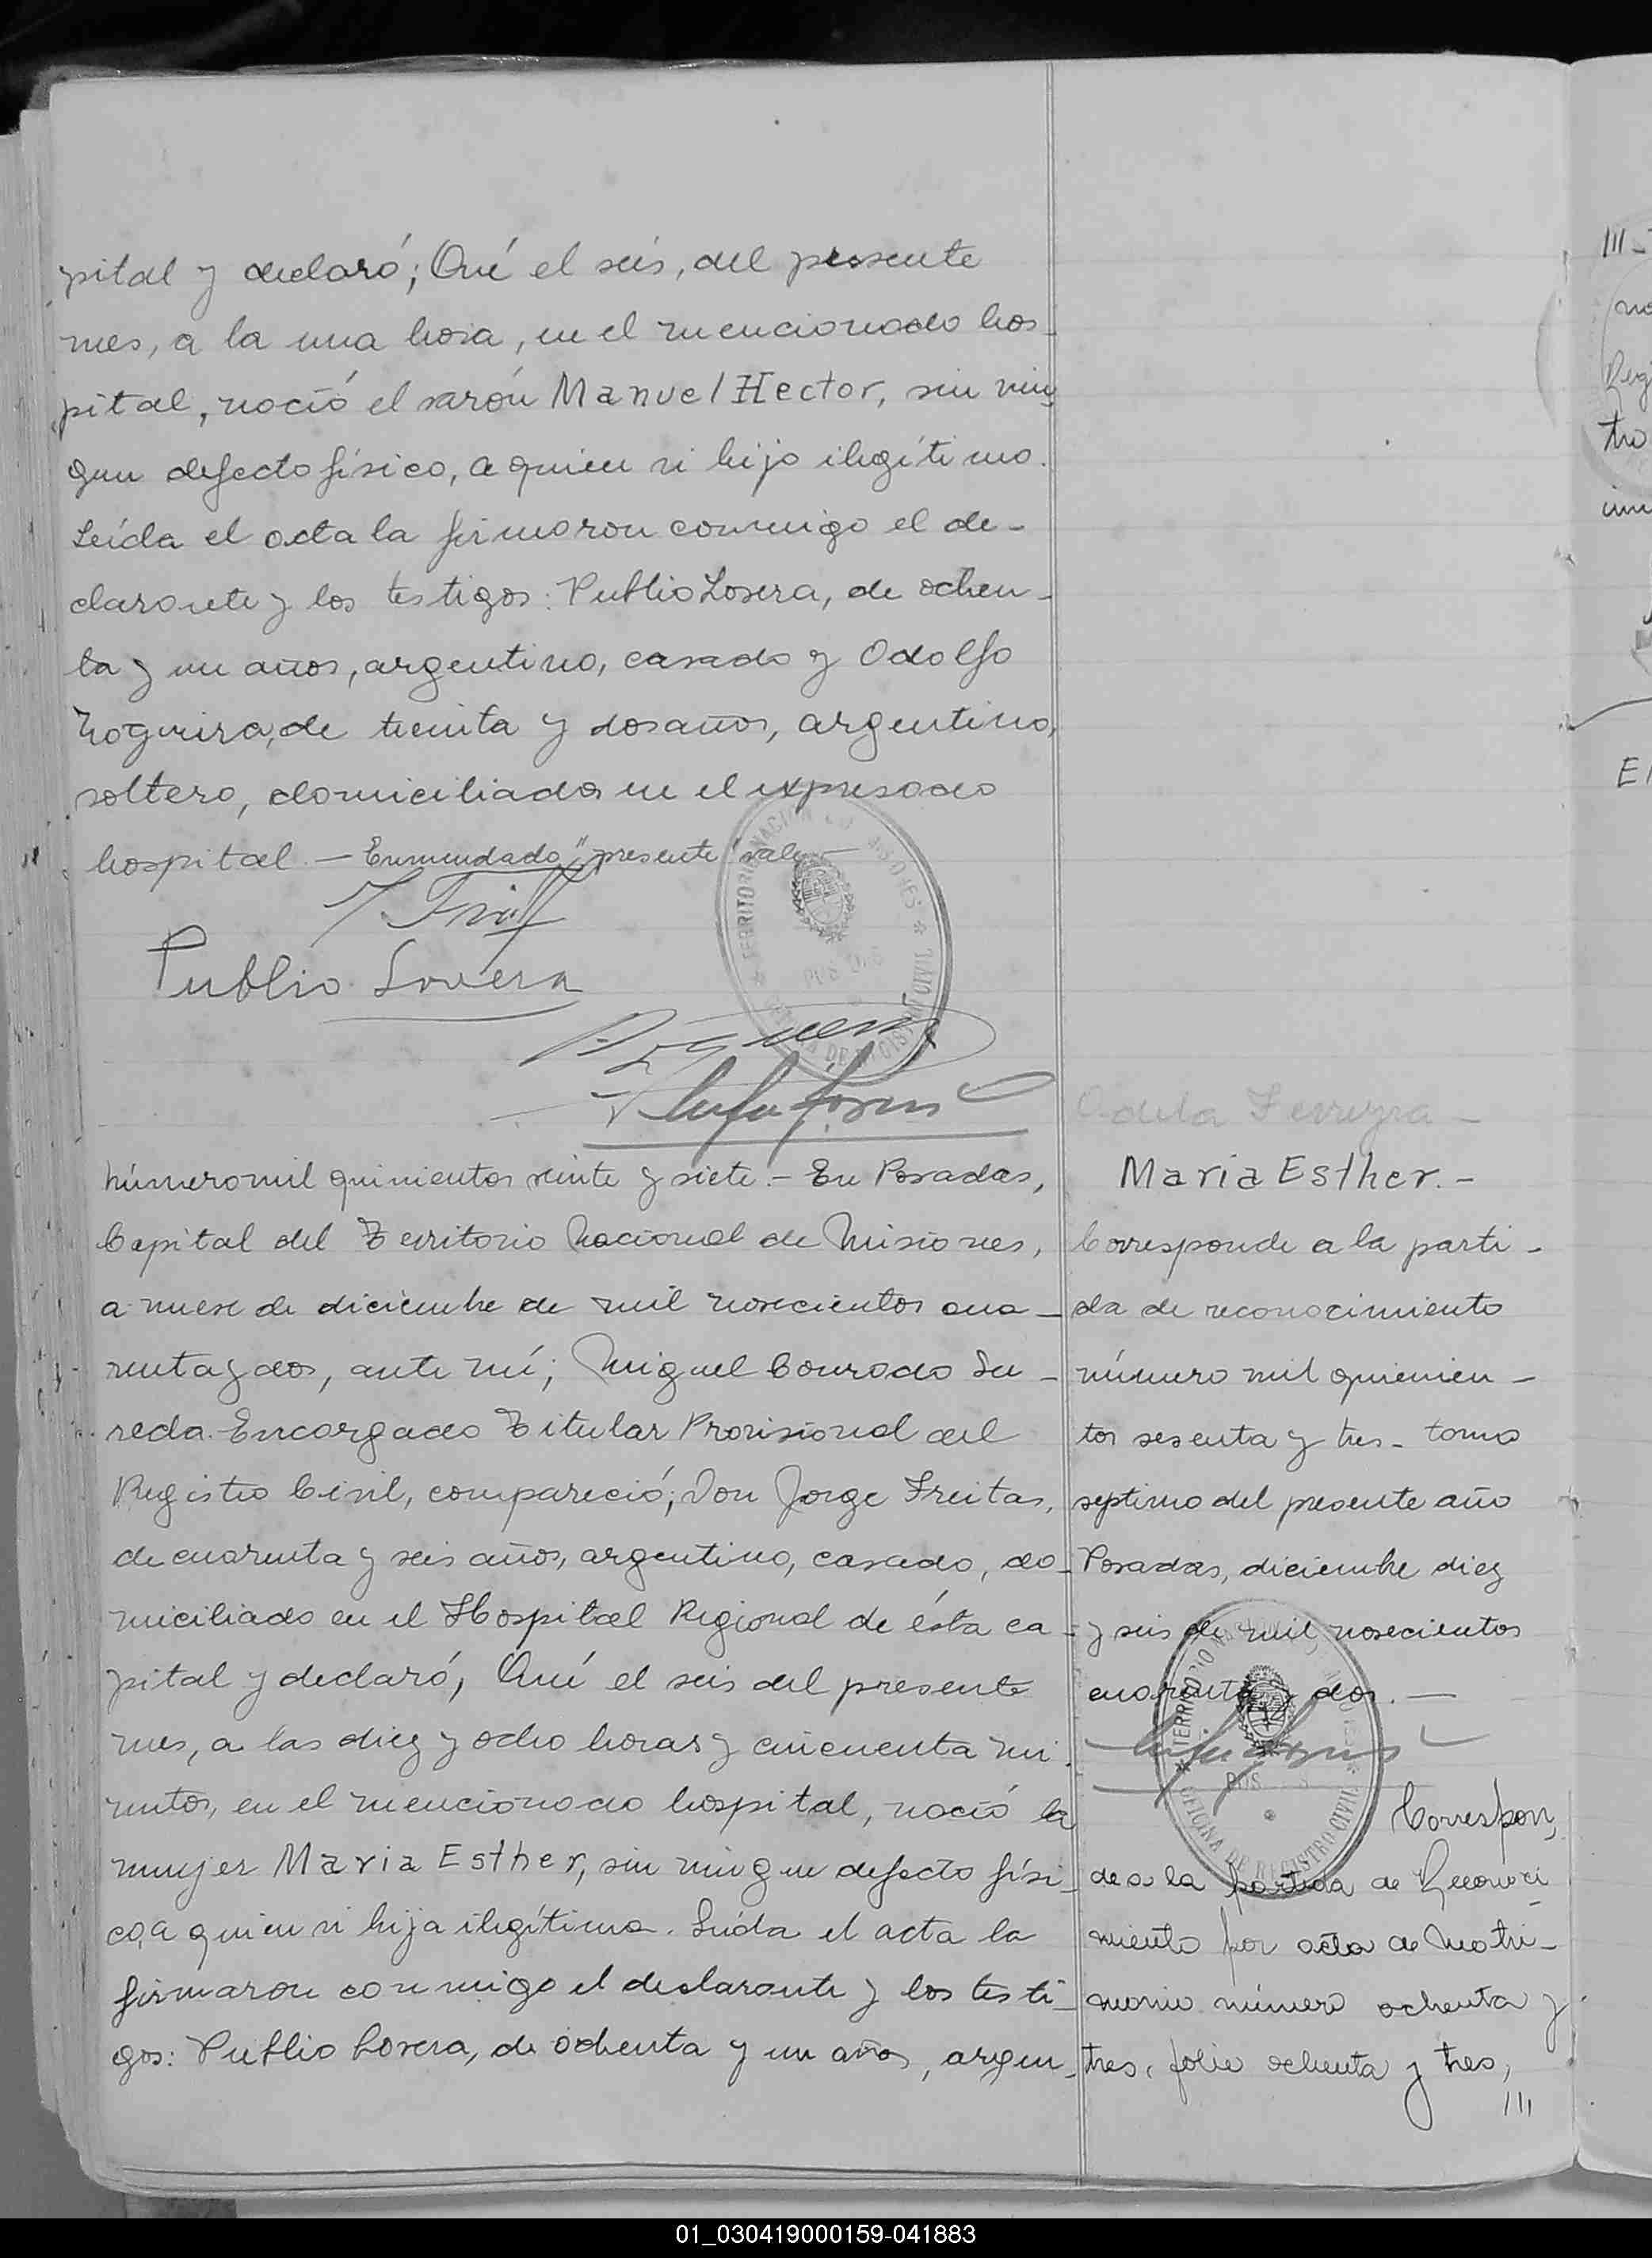 pital y declaró; Qué el seis, del presente
mes, a la una hora, en el mencionado hos-
pital, nació el varón Manuel Hector, sin nin-
gun defecto físico, a quien vi hijo ilegítimo.
Leída el acta la firmaron conmigo el de-
clarante y los testigos: Publio Lovera, de ochen-
ta y un años, argentino, casado y Adolfo
Nogueira, de treinta y dos años, argentino,
soltero, domiciliados en el expresado
hospital. — Enmendado "presente" vale —
Publio Lovera
TERRITORIO NACIONAL DE MISIONES
POSADAS
OFICINA DE REGISTRO CIVIL
Número mil quinientos veinte y siete. - En Posadas,
Capital del Territorio Nacional de Misiones,
a nueve de diciembre de mil novecientos cua-
renta y dos, ante mí; Miguel Conrado Su-
reda. Encargado Titular Provisional del
Registro Civil, compareció; Don Jorge Freitas,
de cuarenta y seis años, argentino, casado, do-
miciliado en el Hospital Regional de ésta ca-
pital y declaró, Qué el seis del presente
mes, a las diez y ocho horas y cincuenta mi-
nutos, en el mencionado hospital, nació la
mujer Maria Esther, sin ningun defecto físi-
co, a quien vi hija ilegítima. Leída el acta la
firmaron conmigo el declarante y los testi-
gos: Publio Lovera, de ochenta y un años, argen-
Adela Ferreyra -
Maria Esther. -
Corresponde a la parti-
da de reconocimiento
número mil quinien-
tos sesenta y tres - tomo
septimo del presente año
Posadas, diciembre diez
y seis de mil novecientos
cuarenta y dos. —
TERRITORIO NACIONAL DE MISIONES
POSADAS
OFICINA DE REGISTRO CIVIL
Correspon-
de a la partida de Reconoci-
miento por acta de Matri-
monio número ochenta y
tres, folio ochenta y tres,
///
///-
Regi
tro
01_030419000159-041883